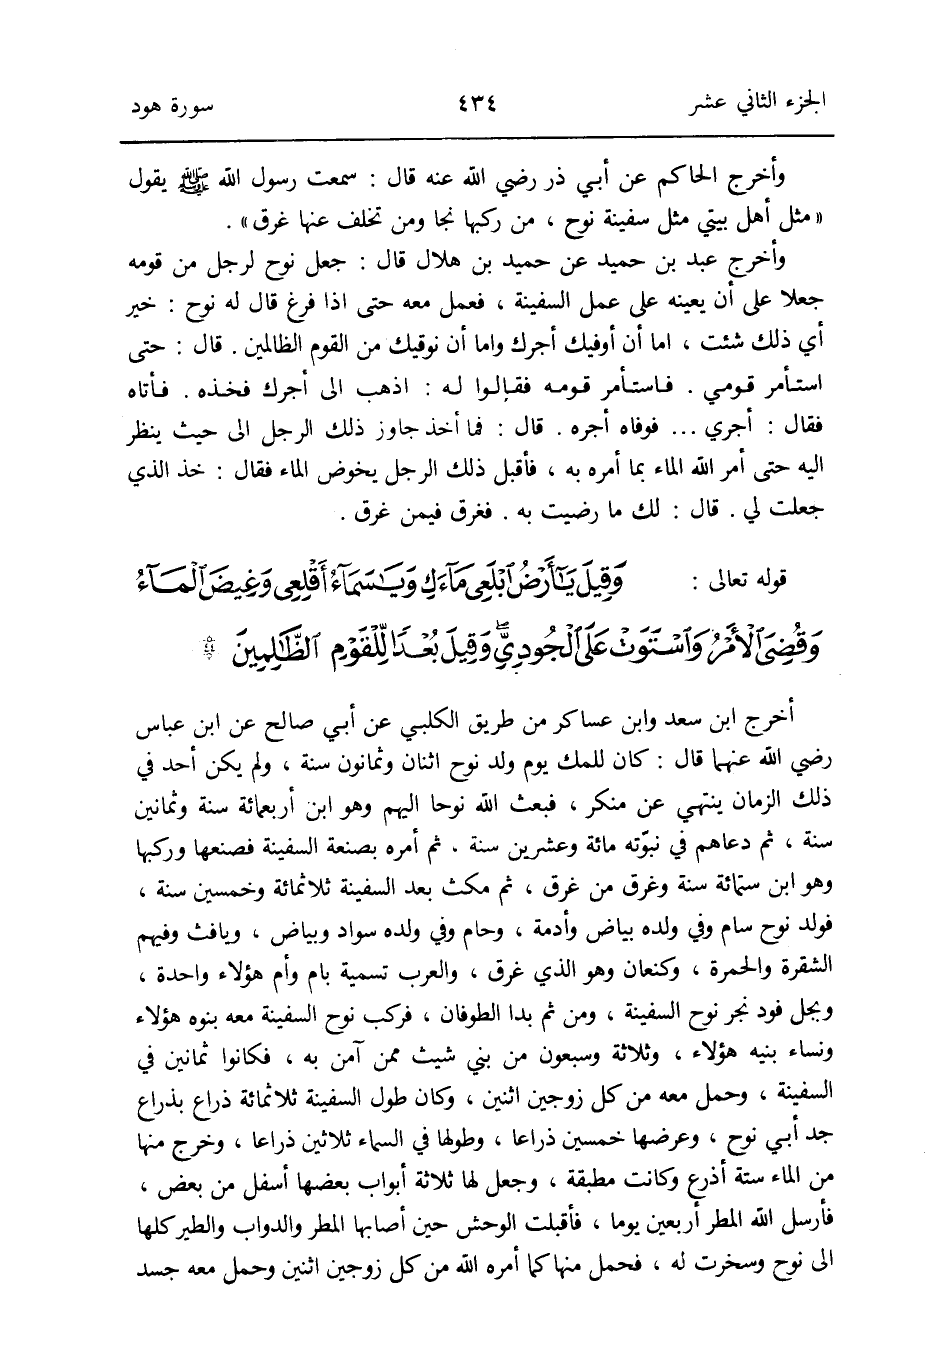 الجزء الثاني عشر ٤٣٤ سورة هود
وأخرج الحاكم عن أبي ذر رضي الله عنه قال : سمعت رسول الله ﷺ يقول
« مثل أهل بيتي مثل سفينة نوح ، من ركبها نجا ومن تخلف عنها غرق » .
وأخرج عبد بن حميد عن حميد بن هلال قال : جعل نوح لرجل من قومه
جعلا على أن يعينه على عمل السفينة ، فعمل معه حتى اذا فرغ قال له نوح : خير
أي ذلك شئت ، اما أن أوفيك أجرك واما أن نوقيك من القوم الظالمين . قال : حتى
استأمر قومي . فاستأمر قومه فقالوا له : اذهب الى أجرك فخذه . فأتاه
فقال : أجري ... فوفاه أجره . قال : فما أخذ جاوز ذلك الرجل الى حيث ينظر
اليه حتى أمر الله الماء بما أمره به ، فأقبل ذلك الرجل يخوض الماء فقال : خذ الذي
جعلت لي . قال : لك ما رضيت به . فغرق فيمن غرق .
قوله تعالى : وَقِيلَ يَٰٓأَرْضُ ٱبْلَعِى مَآءَكِ وَيَٰسَمَآءُ أَقْلِعِى وَغِيضَ ٱلْمَآءُ
وَقُضِىَ ٱلْأَمْرُ وَٱسْتَوَتْ عَلَى ٱلْجُودِىِّ ۖ وَقِيلَ بُعْدًا لِّلْقَوْمِ ٱلظَّٰلِمِينَ
أخرج ابن سعد وابن عساكر من طريق الكلبي عن أبي صالح عن ابن عباس
رضي الله عنهما قال : كان للمك يوم ولد نوح اثنان وثمانون سنة ، ولم يكن أحد في
ذلك الزمان ينتهي عن منكر ، فبعث الله نوحا اليهم وهو ابن أربعمائة سنة وثمانين
سنة ، ثم دعاهم في نبوّته مائة وعشرين سنة . ثم أمره بصنعة السفينة فصنعها وركبها
وهو ابن ستمائة سنة وغرق من غرق ، ثم مكث بعد السفينة ثلاثمائة وخمسين سنة ،
فولد نوح سام وفي ولده بياض وأدمة ، وحام وفي ولده سواد وبياض ، ويافث وفيهم
الشقرة والحمرة ، وكنعان وهو الذي غرق ، والعرب تسمية يام وأم هؤلاء واحدة ،
وبجل فود نجر نوح السفينة ، ومن ثم بدا الطوفان ، فركب نوح السفينة معه بنوه هؤلاء
ونساء بنيه هؤلاء ، وثلاثة وسبعون من بني شيث ممن آمن به ، فكانوا ثمانين في
السفينة ، وحمل معه من كل زوجين اثنين ، وكان طول السفينة ثلاثمائة ذراع بذراع
جد أبي نوح ، وعرضها خمسين ذراعا ، وطولها في السماء ثلاثين ذراعا ، وخرج منها
من الماء ستة أذرع وكانت مطبقة ، وجعل لها ثلاثة أبواب بعضها أسفل من بعض ،
فأرسل الله المطر أربعين يوما ، فأقبلت الوحش حين أصابها المطر والدواب والطير كلها
الى نوح وسخرت له ، فحمل منها كما أمره الله من كل زوجين اثنين وحمل معه جسد